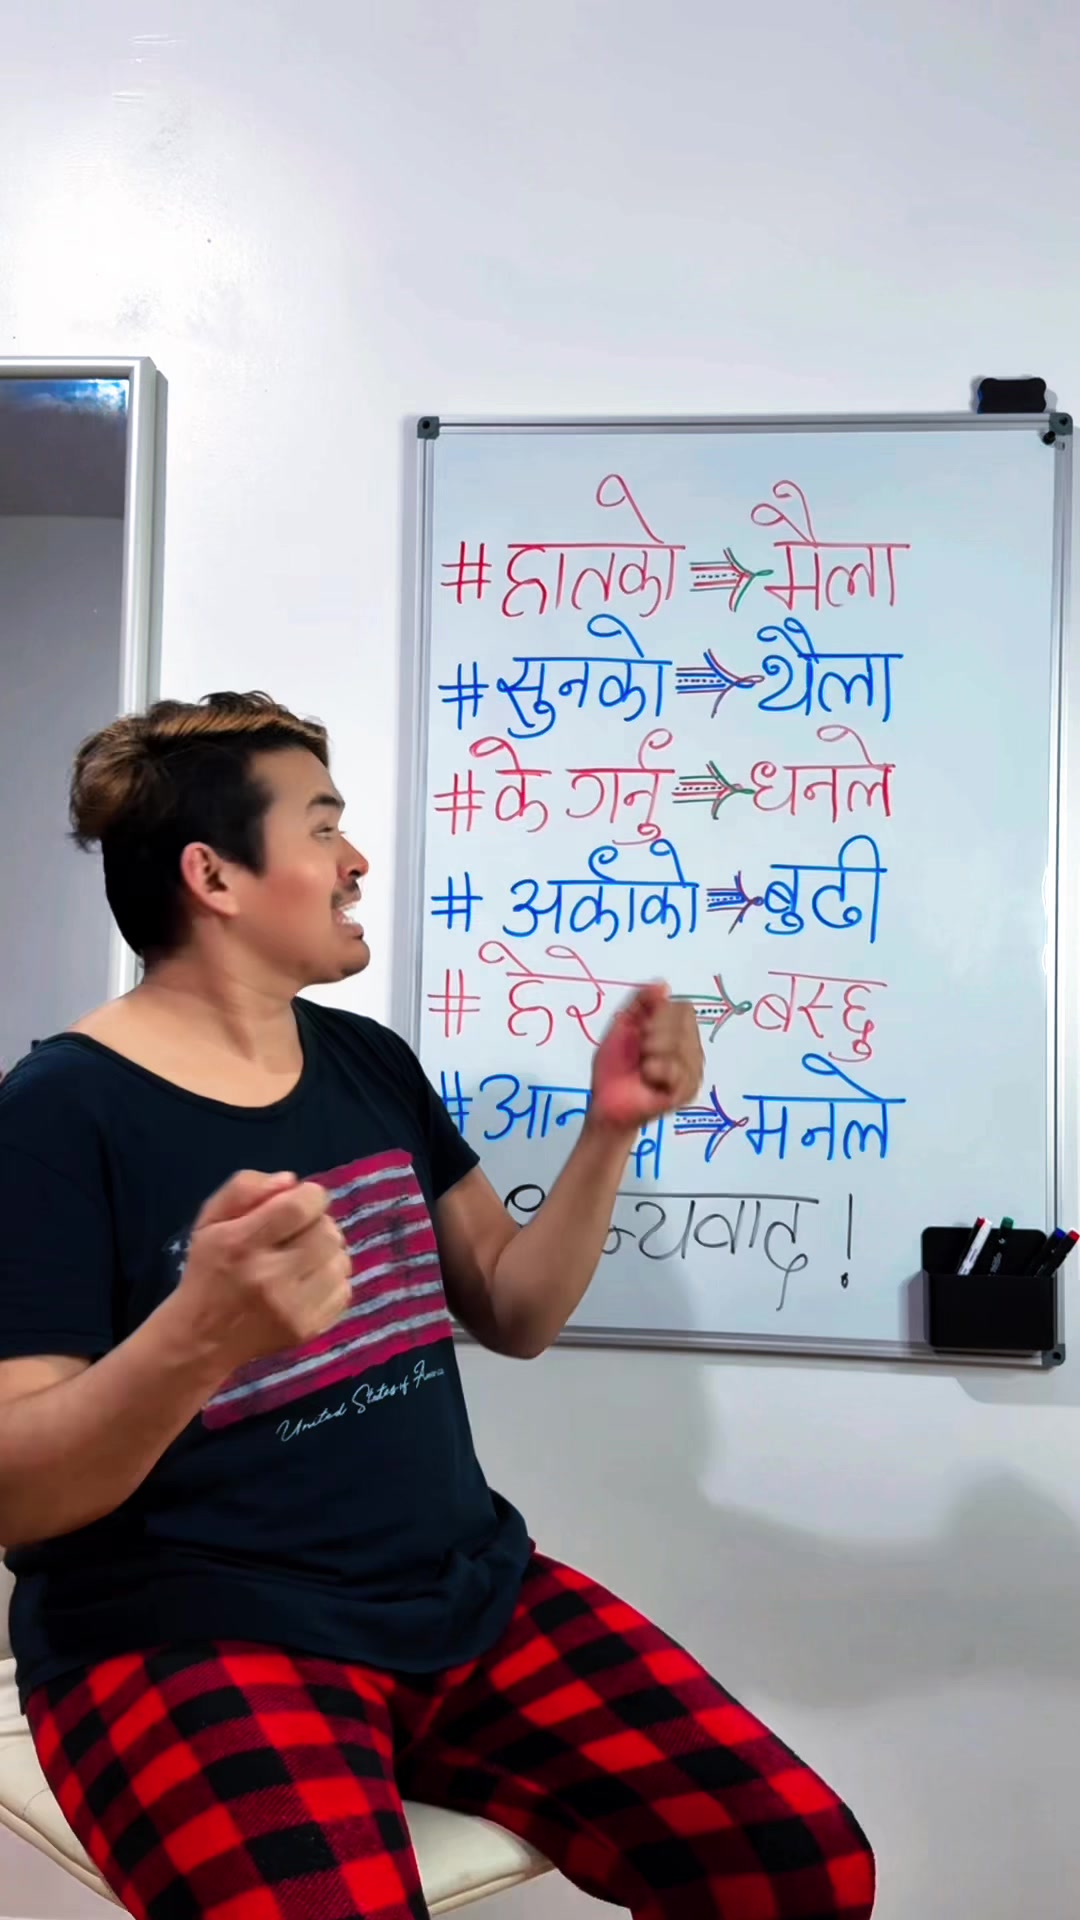 # हातको ⇒ मैला
# सुनको ⇒ थैला
# के गर्नु ⇒ धनले
# अर्काको ⇒ बुढी
# हेरे ⇒ बस्छु
# ⇒ मनले
!
United States of America